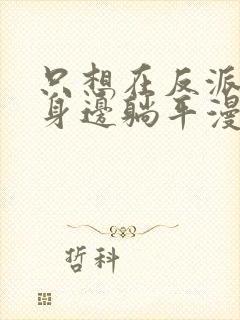 只想在反派
身邊躺平漫
哲科